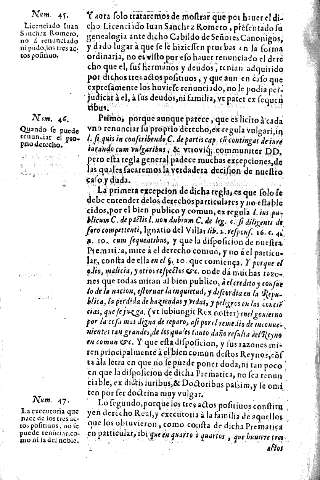 Num. 45.
Licenciado Iuan
Sanchez Romero,
no á renunciado
ni pudo, los tres ac-
tos positiuos.
Y aora solo trataremos de mostrar que por hauer el di-
cho Licenciado Iuan Sanchez Romero, presentado su
genealogia ante dicho Cabildo de Señores Canonigos,
y dado lugar à que se le hiziessen pruebas en la forma
ordinaria, no es visto por esso hauer renunciado el dere-
cho que el, sus hermanos y deudos, tenian adquirido
por dichos tres actos positiuos, y que aun en caso que
expresamente los huviese renunciado, no le podia per-
judicar à el, à sus deudos, ni familia, vt patet ex sequen
tibus.
Num. 46.
Quando se puede
renunciar el pro-
prio derecho.
Primò, porque aunque parece, que es licito à cada
vno renunciar su proprio derecho, ex regula vulgari, in
l. si quis in conscribendo C. de partis cap. si contingat de iure
iurando cum vulgaribus, & vtrovique communiter DD,
pero esta regla general padece muchas excepciones, de
las quales sacaremos la verdadera decission de nuestro
caso y duda.
La primera excepcion de dicha regla, es que solo se
debe entender de los derechos particulares, y no estable
cidos, por el bien publico y comun, ex regula l. ius pu-
blicum C. de pactis, l. non dubium C. de leg. c. si diligenti de
foro competenti, Ignatio del Villar lib. 2. respons. 6. ex
n. 10. cum sequentibus, y que la disposicion de nuestra
Prematica, mire à el derecho comun, y no à el particu-
lar, consta de ella en el §. 20. que comiença. Y porque el
odio, malicia, y otros respectos &c. onde dà muchas razo-
nes que todas miran al bien publico, à el credito y consue-
lo de la nacion, estoruar la inquietud, y discordia en la Repu-
blica, la perdida de haziendas y vidas, y peligros en las concien-
cias, que se juzga, (vt subiungit Rex noster) en el gouierno
por la cosa mas digna de reparo, assi por el remedio de inconue-
nientes tan grandes, de los quales tanto daño resulta del Reyno
en comun &c. Y que esta disposicion, y sus razones mi-
ren principalmente à el bien comun destos Reynos, cõs
ta à la letra en que no se puede poner duda, ni tan poco
en que la disposicion de dicha Prematica, no sea renun
ciable, ex dictis iuribus, & Doctoribus passim, y lo omi
ten por ser doctrina muy vulgar.
Num. 47.
La executoria que
nace de los tres ac-
tos positiuos, no se
puede renunciar, co-
mo ni la del noble.
Lo segundo, porque los tres actos positiuos constitu
yen derecho Real, y executoria à la familia de aquellos
que los obtuvieron, como consta de dicha Prematica
en particular, ibi que en quarto à quartos, que huuiere tres
actos